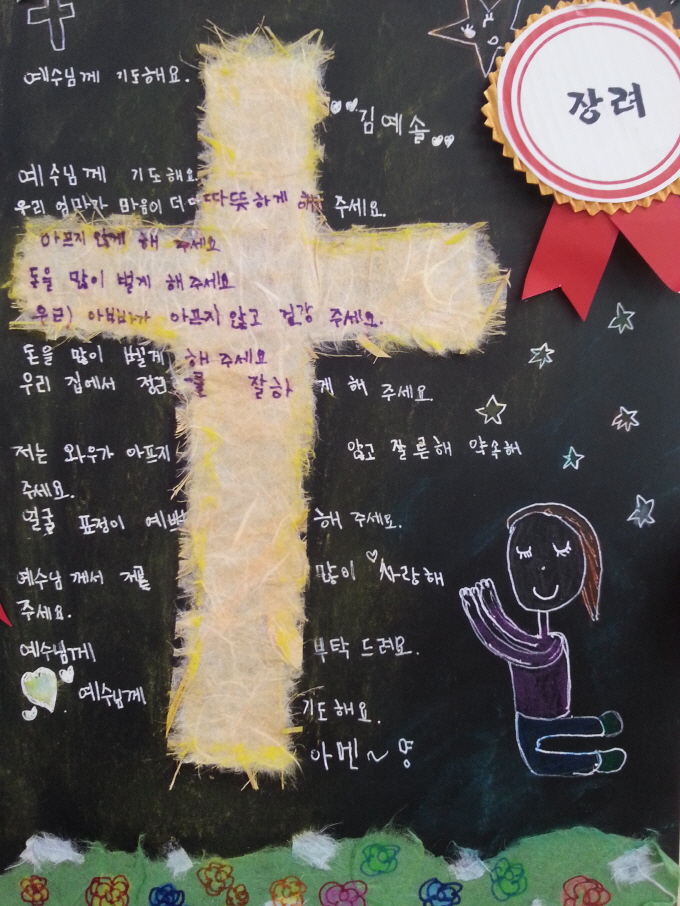 장려
예수님께 기도해요.
김예솔
예수님께 기도해요.
우리 엄마가 마음이 더 더 따뜻하게 해 주세요.
아프지 않게 해 주세요
돈을 많이 벌게 해 주세요
우리 아빠가 아프지 않고 건강 주세요.
돈을 많이 벌게 해 주세요
우리 집에서 정리를 잘하게 해 주세요.
저는 와우가 아프지 않고 잘 해 약속해
주세요.
얼굴 표정이 예쁘 해 주세요.
예수님께서 저를 많이 사랑해
주세요.
예수님께 부탁 드려요.
예수님께 기도해요.
아멘~ 양